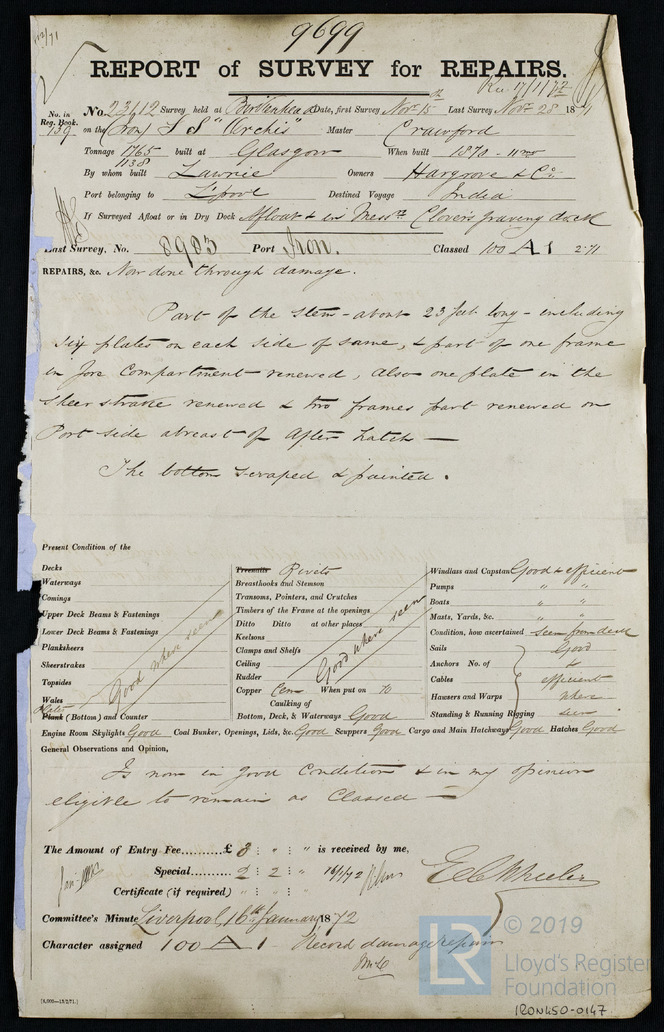 9699
REPORT of SURVEY for REPAIRS.
Rec 17/1/72
No. in Reg. Book. No. 23612 Survey held at Birkenhead Date, first Survey Novr 15th Last Survey Novr 28 1871
739 on the (Iron) S S "Archis" Master Crawford
Tonnage 1765 built at Glasgow When built 1870 - 11mo
1138
By whom built Lawrie Owners Hargrove & Co.
Port belonging to L'pool Destined Voyage India
If Surveyed Afloat or in Dry Dock Afloat & in Messrs Clover's graving dock
Last Survey, No. 8983 Port Iron. Classed 100 A1 2.71
REPAIRS, &c. Now done through damage.
Part of the Stem - about 23 feet long - including
six plates on each side of same, & part of one frame
in fore compartment renewed, also one plate in the
sheer strake renewed & two frames part renewed on
Port side abreast of After hatch —
The bottom scraped & painted.
Present Condition of the
Decks
Waterways
Comings
Upper Deck Beams & Fastenings
Lower Deck Beams & Fastenings
Planksheers
Sheerstrakes
Topsides
Wales
Good where seen
Plates
Plank (Bottom) and Counter
Treenails Rivets
Breasthooks and Stemson
Transoms, Pointers, and Crutches
Timbers of the Frame at the openings
Ditto Ditto at other places
Keelsons
Clamps and Shelfs
Ceiling
Rudder
Good where seen
Copper Cem When put on 70
Caulking of
Bottom, Deck, & Waterways Good
Windlass and Capstan Good & efficient
Pumps " "
Boats " "
Masts, Yards, &c. " "
Condition, how ascertained seen from deck
Sails Good
Anchors No. of &
Cables efficient
Hawsers and Warps where
Standing & Running Rigging seen
Engine Room Skylights Good Coal Bunker, Openings, Lids, &c. Good Scuppers Good Cargo and Main Hatchways Good Hatches Good
General Observations and Opinion,
Is now in good condition & in my opinion
eligible to remain as Classed —
The Amount of Entry Fee.......... £ 3 : " : " is received by me,
Special.......... 2 : 2 : " 16/1/72
Certificate (if required) " : " : "
E C Wheeler
Committee's Minute Liverpool, 16th January 1872
Character assigned 100 A 1 - Record damage repairs
[8,000—13/2/71.]
© 2019
LR
Lloyd's Register
Foundation
IRON450-0147